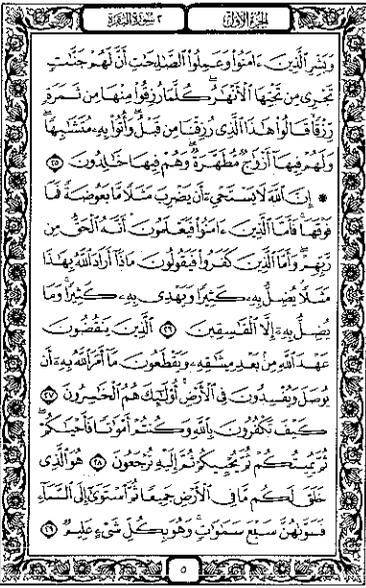 الجزء الأول
٢ سورة البقرة
وَبَشِّرِ الَّذِينَ ءَامَنُوا وَعَمِلُوا الصَّٰلِحَٰتِ أَنَّ لَهُمْ جَنَّٰتٍ
تَجْرِي مِن تَحْتِهَا الْأَنْهَٰرُ كُلَّمَا رُزِقُوا مِنْهَا مِن ثَمَرَةٍ
رِّزْقًا قَالُوا هَٰذَا الَّذِي رُزِقْنَا مِن قَبْلُ وَأُتُوا بِهِ مُتَشَٰبِهًا
وَلَهُمْ فِيهَا أَزْوَٰجٌ مُّطَهَّرَةٌ وَهُمْ فِيهَا خَٰلِدُونَ ٢٥
* إِنَّ اللَّهَ لَا يَسْتَحْيِۦٓ أَن يَضْرِبَ مَثَلًا مَّا بَعُوضَةً فَمَا
فَوْقَهَا فَأَمَّا الَّذِينَ ءَامَنُوا فَيَعْلَمُونَ أَنَّهُ الْحَقُّ مِن
رَّبِّهِمْ وَأَمَّا الَّذِينَ كَفَرُوا فَيَقُولُونَ مَاذَا أَرَادَ اللَّهُ بِهَٰذَا
مَثَلًا يُضِلُّ بِهِ كَثِيرًا وَيَهْدِي بِهِ كَثِيرًا وَمَا
يُضِلُّ بِهِ إِلَّا الْفَٰسِقِينَ ٢٦ الَّذِينَ يَنقُضُونَ
عَهْدَ اللَّهِ مِن بَعْدِ مِيثَٰقِهِ وَيَقْطَعُونَ مَا أَمَرَ اللَّهُ بِهِ أَن
يُوصَلَ وَيُفْسِدُونَ فِي الْأَرْضِ أُولَٰئِكَ هُمُ الْخَٰسِرُونَ ٢٧
كَيْفَ تَكْفُرُونَ بِاللَّهِ وَكُنتُمْ أَمْوَٰتًا فَأَحْيَٰكُمْ
ثُمَّ يُمِيتُكُمْ ثُمَّ يُحْيِيكُمْ ثُمَّ إِلَيْهِ تُرْجَعُونَ ٢٨ هُوَ الَّذِي
خَلَقَ لَكُم مَّا فِي الْأَرْضِ جَمِيعًا ثُمَّ اسْتَوَىٰ إِلَى السَّمَاءِ
فَسَوَّىٰهُنَّ سَبْعَ سَمَٰوَٰتٍ وَهُوَ بِكُلِّ شَيْءٍ عَلِيمٌ ٢٩
٥